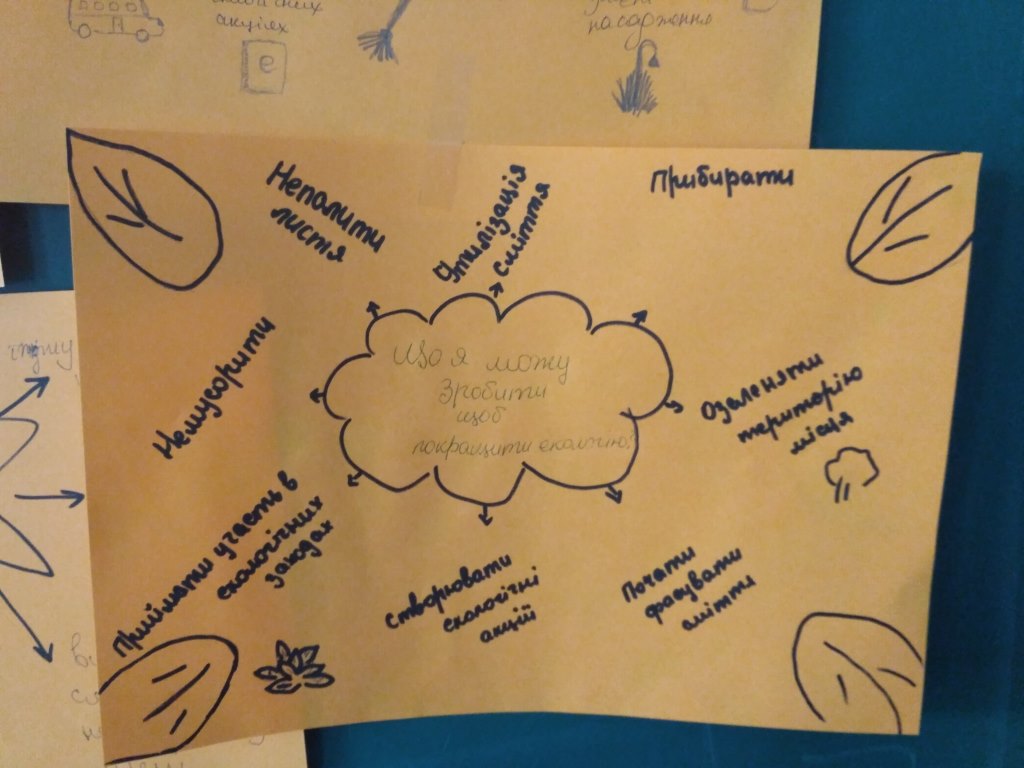 акціях
насадження
е
Непалити
листя
Утилізація
сміття
Прибирати
Що я можу
Зробити
щоб
покращити екологію?
Немусорити
Озеленяти
територію
місця
Приймати участь в
екологічних
заходах
створювати
екологічні
акцій
Почати
фасувати
сміття